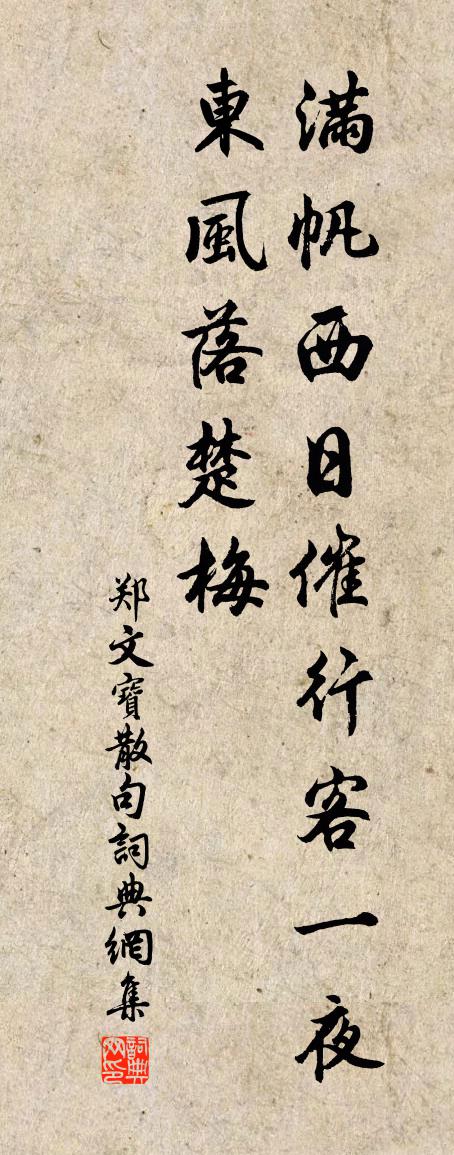 滿帆西日催行客一夜
東風落楚梅
郑文寶散句詞典網集
詞典網印